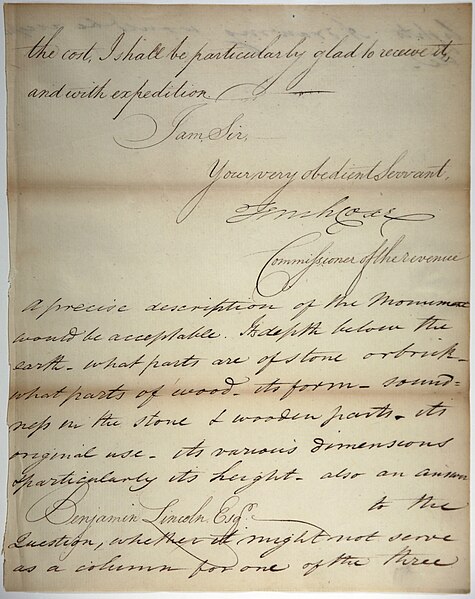 the cost, I shall be particularly glad to receive it,
and with expedition
I am, Sir,
Your very obedient Servant,
Tench Coxe
Commissioner of the revenue
A precise description of the Monument
would be acceptable. Its depth below the
earth - what parts are of stone or brick -
what parts of wood - its form - sound-
ness in the stone & wooden parts - its
original use - its various dimensions
particularly its height - also an answer
Benjamin Lincoln Esqr. to the
Question, whether it might not serve
as a column for one of the three